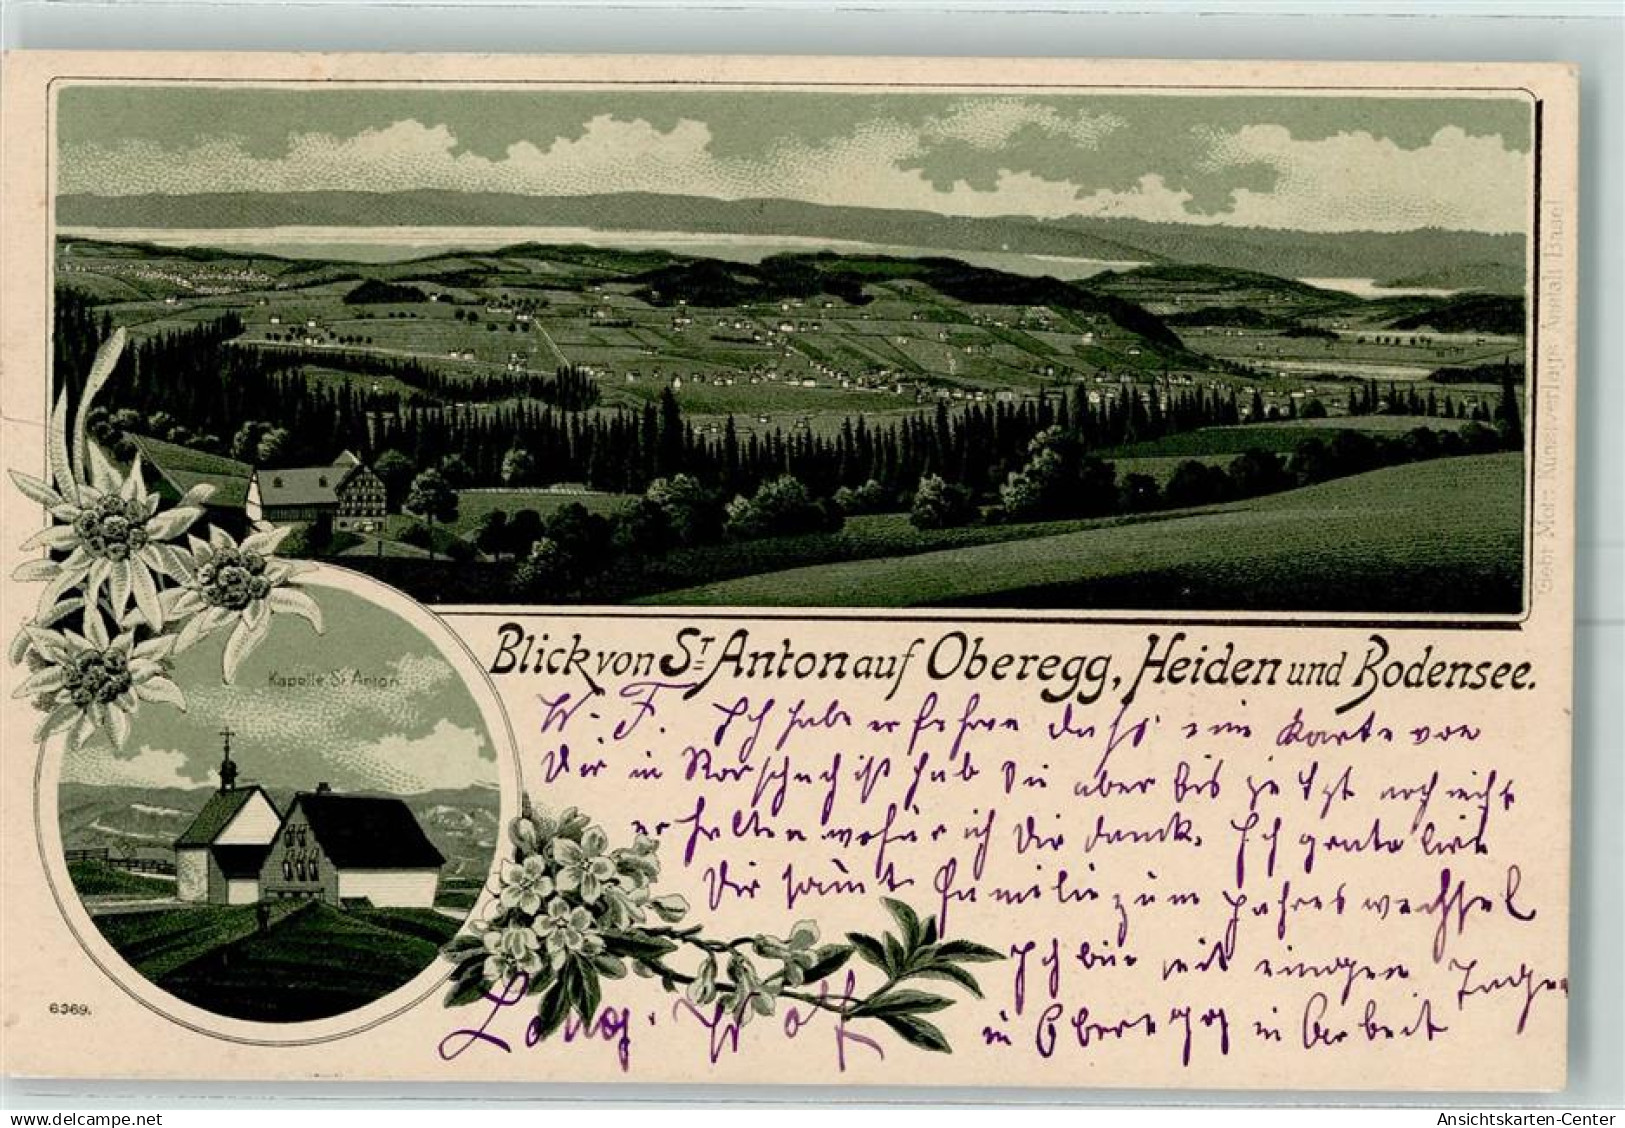 Blick von St. Anton auf Oberegg, Heiden und Bodensee.
Kapelle St. Anton
W. F. Ich habe erfahren dass eine Karte von
Dir in Rorschach ist hab Sie aber bis jetzt noch nicht
erhalten wofür ich Dir danck. Ich gratoliere
Dir samt Familie zum Jahreswechsel
Ich bin seit einigen Tagen
in Oberegg in Arbeit
6369.
Gebr. Metz Kunstverlags-Anstalt Basel
www.delcampe.net
Ansichtskarten-Center